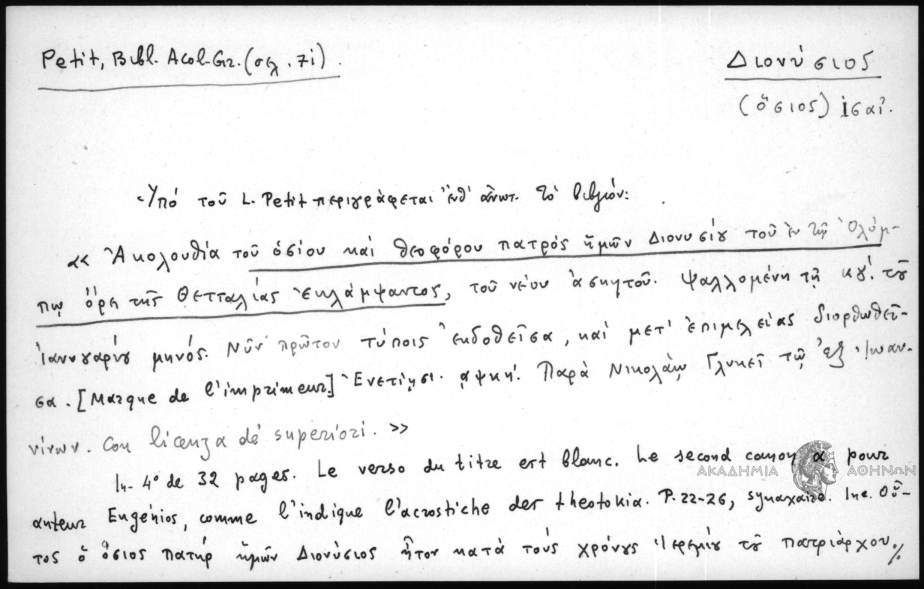 Petit, Bibl. Acol. Gr. (σελ. 71).
Διονύσιος
(ὅσιος) ἰσαῒ.
Ὑπό τοῦ L. Petit περιγράφεται ἐνθ' ἀνωτ. τό βιβλίον:
«Ἀκολουθία τοῦ ὁσίου καί θεοφόρου πατρός ἡμῶν Διονυσίου τοῦ ἐν τῷ Ὀλύμ-
πῳ ὄρει τῆς Θετταλίας ἐκλάμψαντος, τοῦ νέου ἀσκητοῦ. Ψαλλομένη τῇ κγ΄. τοῦ
Ἰαννουαρίου μηνός. Νῦν πρῶτον τύποις ἐκδοθεῖσα, καί μετ' ἐπιμελείας διορθωθεῖ-
σα. [Marque de l'imprimeur] Ἐνετίῃσι. αψκη΄. Παρά Νικολάῳ Γλυκεῖ τῷ ἐξ Ἰωαν-
νίνων. Con licenza de' superiori.»
In-4° de 32 pages. Le verso du titre est blanc. Le second canon a pour
auteur Eugénios, comme l'indique l'acrostiche des theotokia. P. 22-26, synaxaire. Inc. Οὗ-
τος ὁ ὅσιος πατήρ ἡμῶν Διονύσιος ἦτον κατά τούς χρόνους Ἱερεμίου τοῦ πατριάρχου./.
ΑΚΑΔΗΜΙΑ ΑΘΗΝΩΝ